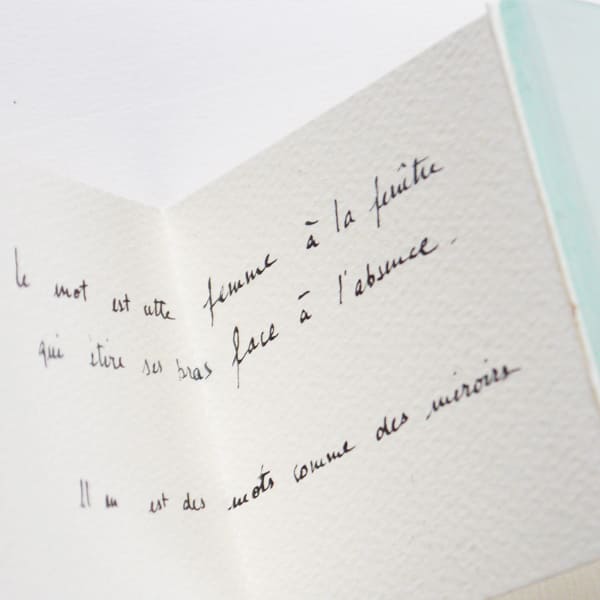 le mot est cette femme à la fenêtre
qui étire ses bras face à l'absence.
Il en est des mots comme des miroirs